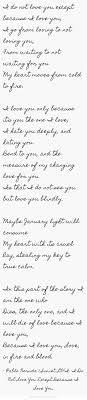 I do not love you except
because I love you;
I go from loving to not
loving you,
From waiting to not
waiting for you
My heart moves from cold
to fire.
I love you only because
it's you the one I love;
I hate you deeply, and
hating you
Bend to you, and the
measure of my changing
love for you
Is that I do not see you
but love you blindly.
Maybe January light will
consume
My heart with its cruel
Ray, stealing my key to
true calm.
In this part of the story I
am the one who
Dies, the only one, and I
will die of love because I
love you,
Because I love you, Love,
in fire and blood.
- Pablo Neruda, I Do
Not Love You Except Because I
Love You